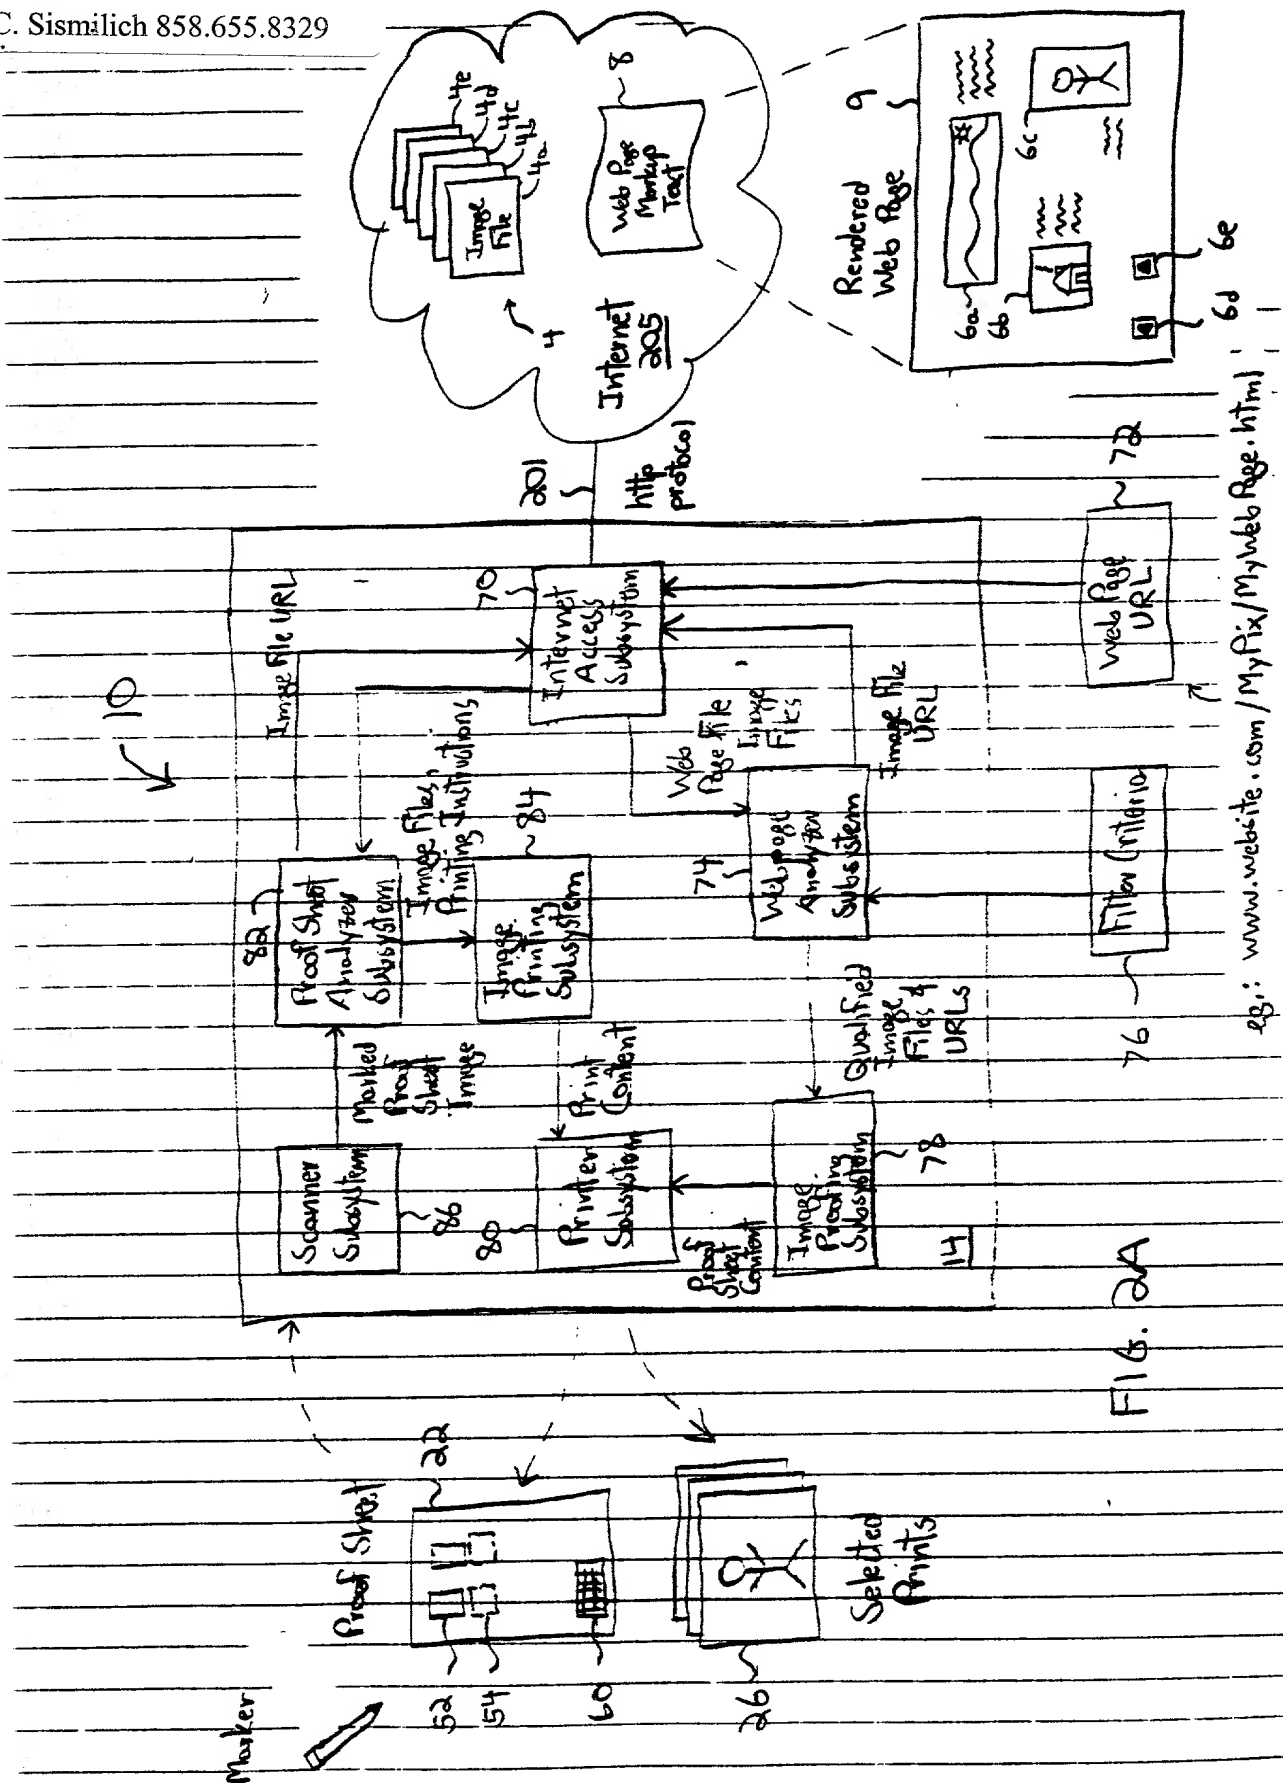 C. Sismilich 858.655.8329
10
Marker
Proof Sheet
22
52
54
60
26
Selected
Prints
Scanner
Subsystem
86
Marked
Proof
Sheet
Image
82
Proof Sheet
Analyzer
Subsystem
Image File URL
Image Files,
Printing Instructions
84
Image
Printing
Subsystem
Print
Content
80
Printer
Subsystem
Proof
Sheet
Content
Image
Proofing
Subsystem
78
14
Qualified
Image
Files &
URLs
74
Web Page
Analyzer
Subsystem
Web
Page File
Image
Files
Image File
URL
70
Internet
Access
Subsystem
201
http
protocol
Internet
205
4
Image
File
4a
4b
4c
4d
4e
8
Web Page
Markup
Text
Rendered
Web Page
9
6a
6b
6c
6d
6e
76
Filter Criteria
Web Page
URL
72
eg.: www.website.com/MyPix/MyWebPage.html
FIG. 2A